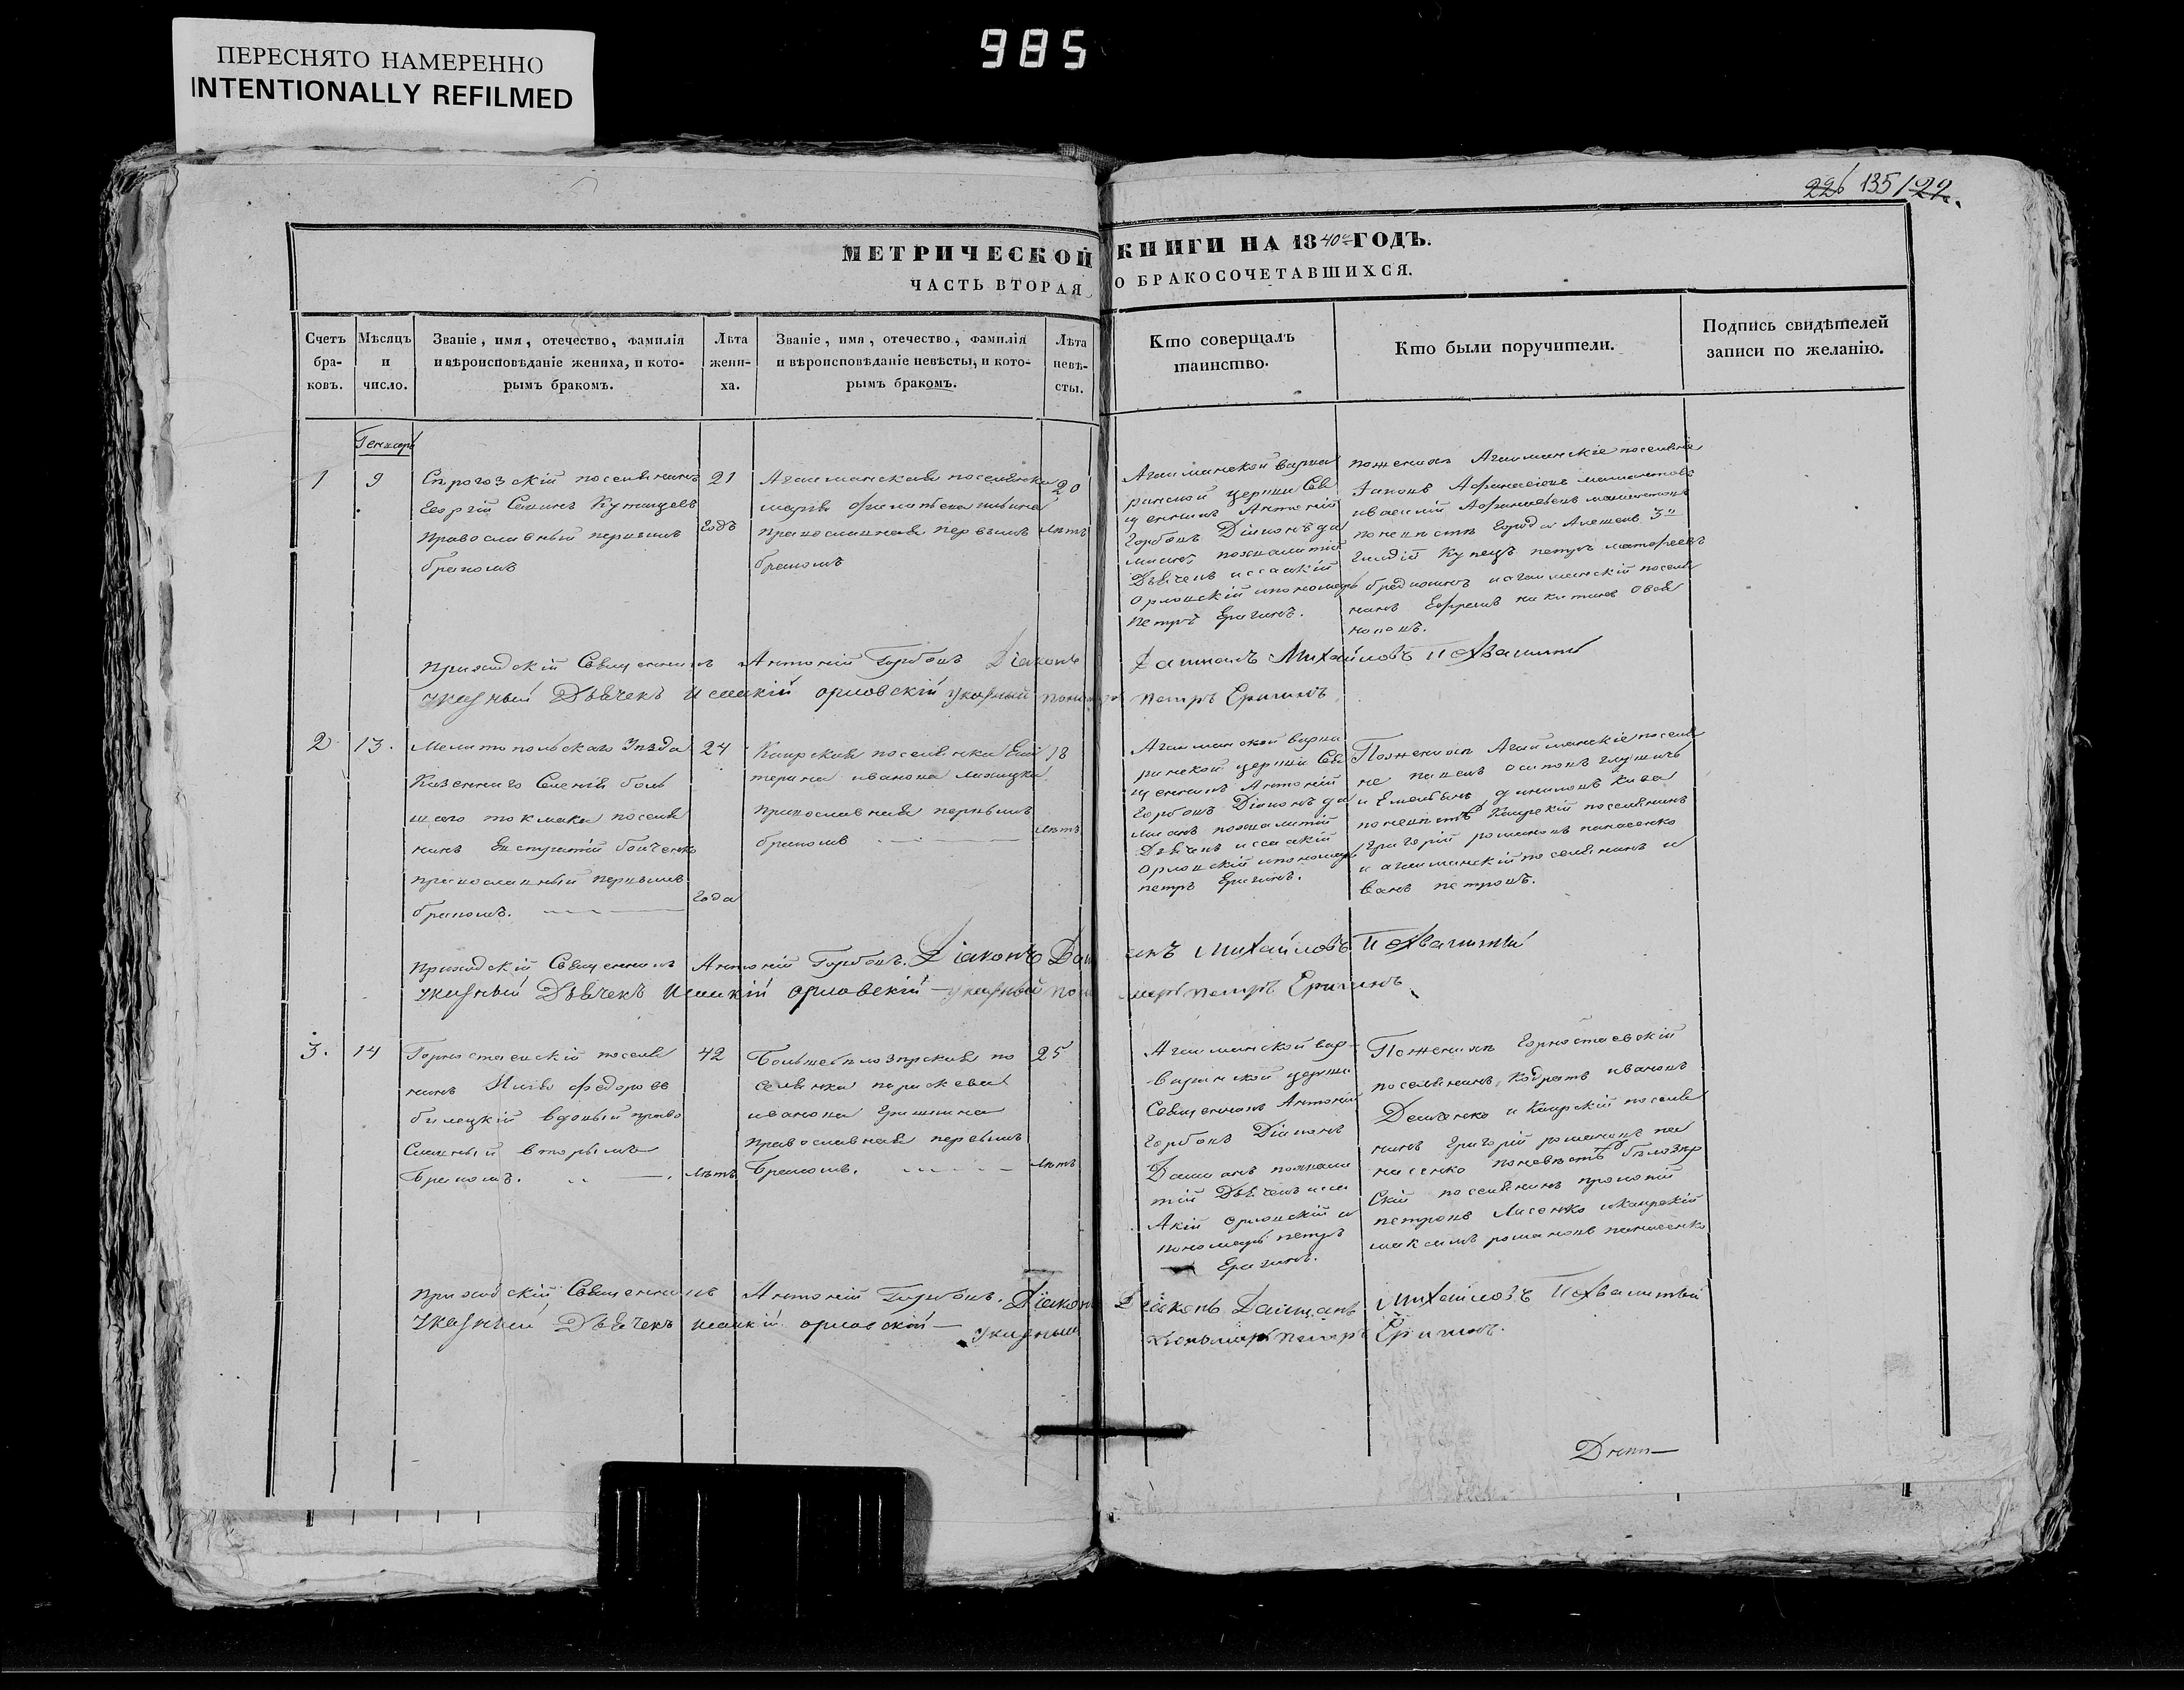 ПЕРЕСНЯТО НАМЕРЕННО
INTENTIONALLY REFILMED
985
226 135/22.
МЕТРИЧЕСКОЙ КНИГИ НА 1840й ГОДЪ.
ЧАСТЬ ВТОРАЯ О БРАКОСОЧЕТАВШИХСЯ.
Счетъ
бра-
ковъ.
Мѣсяцъ
и
число.
Званіе, имя, отечество, фамилія
и вѣроисповѣданіе жениха, и кото-
рымъ бракомъ.
Лѣта
жени-
ха.
Званіе, имя, отечество, фамилія
и вѣроисповѣданіе невѣсты, и кото-
рымъ бракомъ.
Лѣта
невѣ-
сты.
Кто совершалъ
таинство.
Кто были поручители.
Подпись свидѣтелей
записи по желанію.
Генварь
1
9
поселянинъ
Георгій
православный первымъ
бракомъ
21
годъ
Агаиманская поселянка
марѳа
православная первымъ
бракомъ
20
лѣтъ
Агаиманской варва
ринской церкви Свя
щенникъ Антоній
Горбовъ Діаконъ да
міанъ похвалитій
Дьячекъ исаакій
Орловскій ипономарь
петръ Еригинъ.
поженихѣ Агаиманскіе поселяне
василій
поневѣстѣ города Алешекъ 3й
гилдіи купецъ петръ матѳеевъ
агаиманскій поселя
нинъ Ефремъ никитинъ
приходскій Священникъ Антоній Горбовъ Діаконъ Даміанъ Михайловъ Похвалитый
указный Дьячекъ Исаакій орловскій указный пономарь петръ Еригинъ
2
13.
Мелитопольскаго Уѣзда
Казеннаго Селенія боль
шаго токмака поселя
нинъ Евстратій бойченко
православный первымъ
бракомъ.
24
года
Каирская поселянка Ека
терина иванова
православная первымъ
бракомъ
18
лѣтъ
Агаиманской варва
ринской церкви Свя
щенникъ Антоній
Горбовъ Діаконъ да
міанъ похвалитій
Дьячекъ исаакій
Орловскій ипономарь
петръ Еригинъ.
Поженихѣ Агаиманскіе поселя
не павелъ осиповъ
и Емельянъ даниловъ
поневѣстѣ Каирскій поселянинъ
григорій романовъ панасенко
и агаиманскій поселянинъ и
ванъ петровъ.
приходскій Священникъ Антоній Горбовъ. Діаконъ Даміанъ Михайловъ Похвалитый
указный Дьячекъ Исаакій орловскій указный пономарь петръ Еригинъ
3.
14
Горностаевскій поселя
нинъ Илья федоровъ
билецкій вдовый право
славный вторымъ
бракомъ.
42
лѣтъ
Большебѣлозирская по
селянка параскева
иванова Гришкина
православная первымъ
бракомъ.
25
лѣтъ
Агаиманской вар-
варинской церкви
Священникъ Антоній
Горбовъ Діаконъ
Даміанъ похвали
тій Дьячекъ иса
акій орловскій и
пономарь петръ
Еригинъ.
Поженихѣ Горностаевскій
поселянинъ Кодратъ ивановъ
Демченко и Каирскій поселя
нинъ Григорій романовъ па
насенко поневѣстѣ бѣлозир
скій поселянинъ прокопій
петровъ Лисенко икаирскій
максимъ романовъ панасенко
приходскій Священникъ Антоній Горбовъ. Діаконъ Діаконъ Даміанъ Михайловъ Похвалитый
указный Дьячекъ исаакій орловскій указный пономарь петръ Еригинъ.